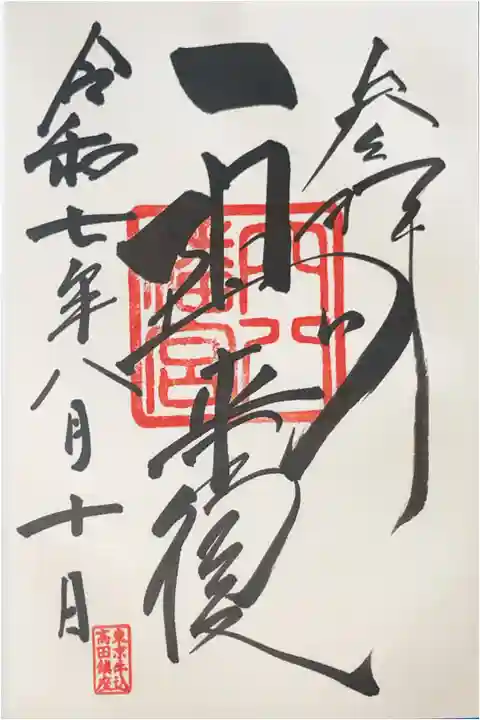 参拝
一陽来復
穴八
幡宮
令和七年八月十日
東京牛込
高田鎮座